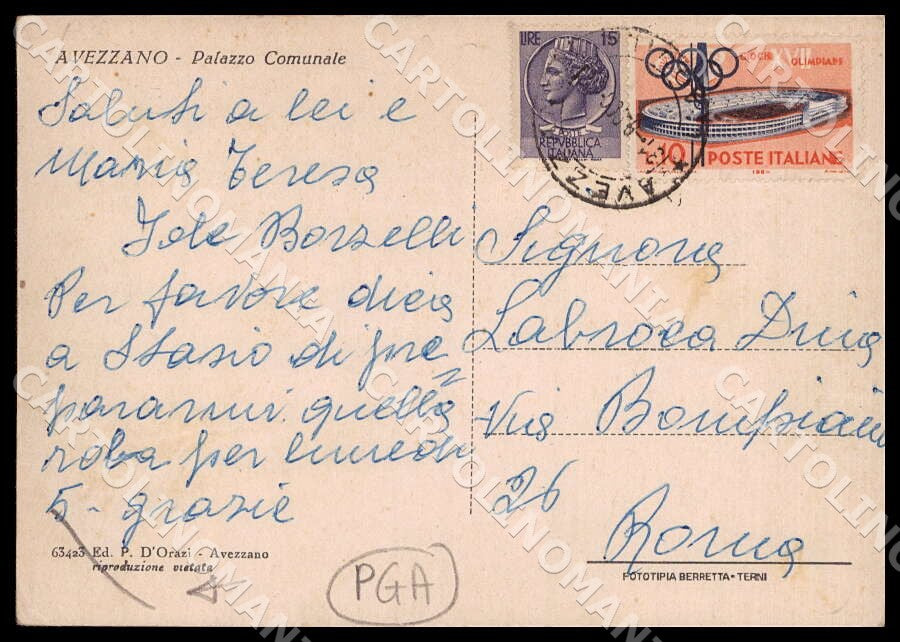 AVEZZANO - Palazzo Comunale
Saluti a lei e
Maria Teresa
Iole Borzelli
Per favore dica
a Stasio di pre=
pararmi quella
roba per lunedi
5 - grazie
63423 Ed. P. D'Orazi - Avezzano
riproduzione vietata
PGA
LIRE 15
POSTE
REPVBBLICA
ITALIANA
GIOCHI XVII OLIMPIADE
10 POSTE ITALIANE
AVEZ
Signora
Labroca Dina
Via Bompiani
26
Roma
FOTOTIPIA BERRETTA - TERNI
CARTOLINOMANIA